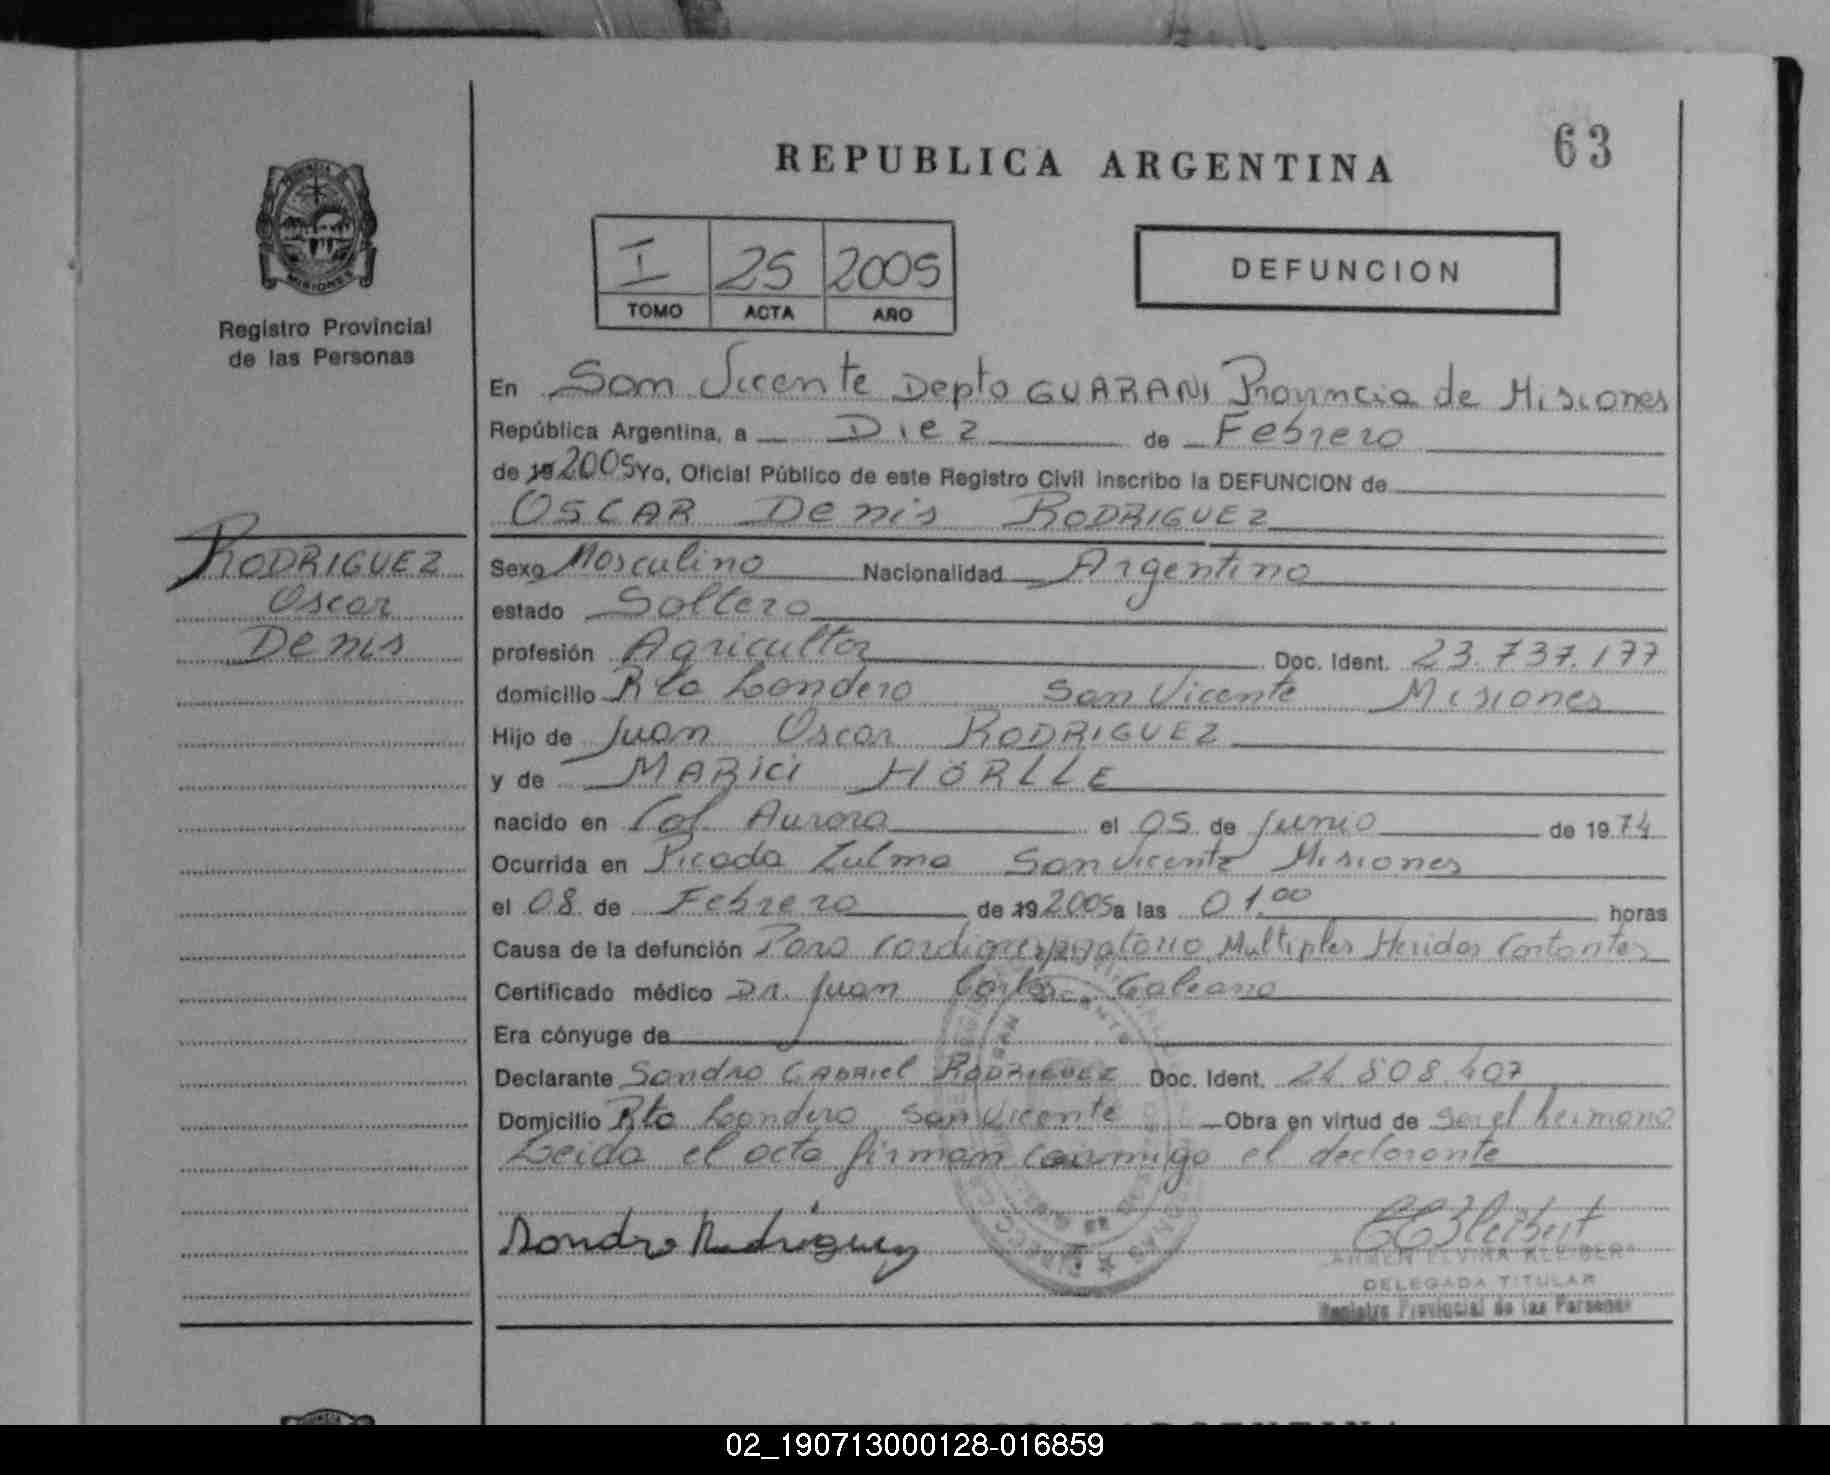 REPUBLICA ARGENTINA
63
PROVINCIA
MISIONES
Registro Provincial
de las Personas
I 25 2005
TOMO ACTA AÑO
DEFUNCION
En San Vicente Depto GUARANI Provincia de Misiones
República Argentina, a Diez de Febrero
de 19 2005 Yo, Oficial Público de este Registro Civil inscribo la DEFUNCION de
OSCAR Denis RODRIGUEZ
RODRIGUEZ
Oscar
Denis
Sexo Masculino Nacionalidad Argentino
estado Soltero
profesión Agricultor Doc. Ident. 23.737.177
domicilio Rto Londero San Vicente Misiones
Hijo de Juan Oscar RODRIGUEZ
y de MARICI HÖRLLE
nacido en Col. Aurora el 05 de Junio de 1974
Ocurrida en Picada Zulma San Vicente Misiones
el 08 de Febrero de 19 2005 a las 01.00 horas
Causa de la defunción Paro Cardiorespiratorio Multiples Heridas Cortantes
Certificado médico Dr. Juan Carlos Galeano
Era cónyuge de
Declarante Sandro GABRIEL RODRIGUEZ Doc. Ident. 24.808.407
Domicilio Rto Londero San Vicente Obra en virtud de ser el hermano
Leida el acta firman conmigo el declarante
Sandro Rodriguez
DELEGADA TITULAR
Registro Provincial de las Personas
02_190713000128-016859